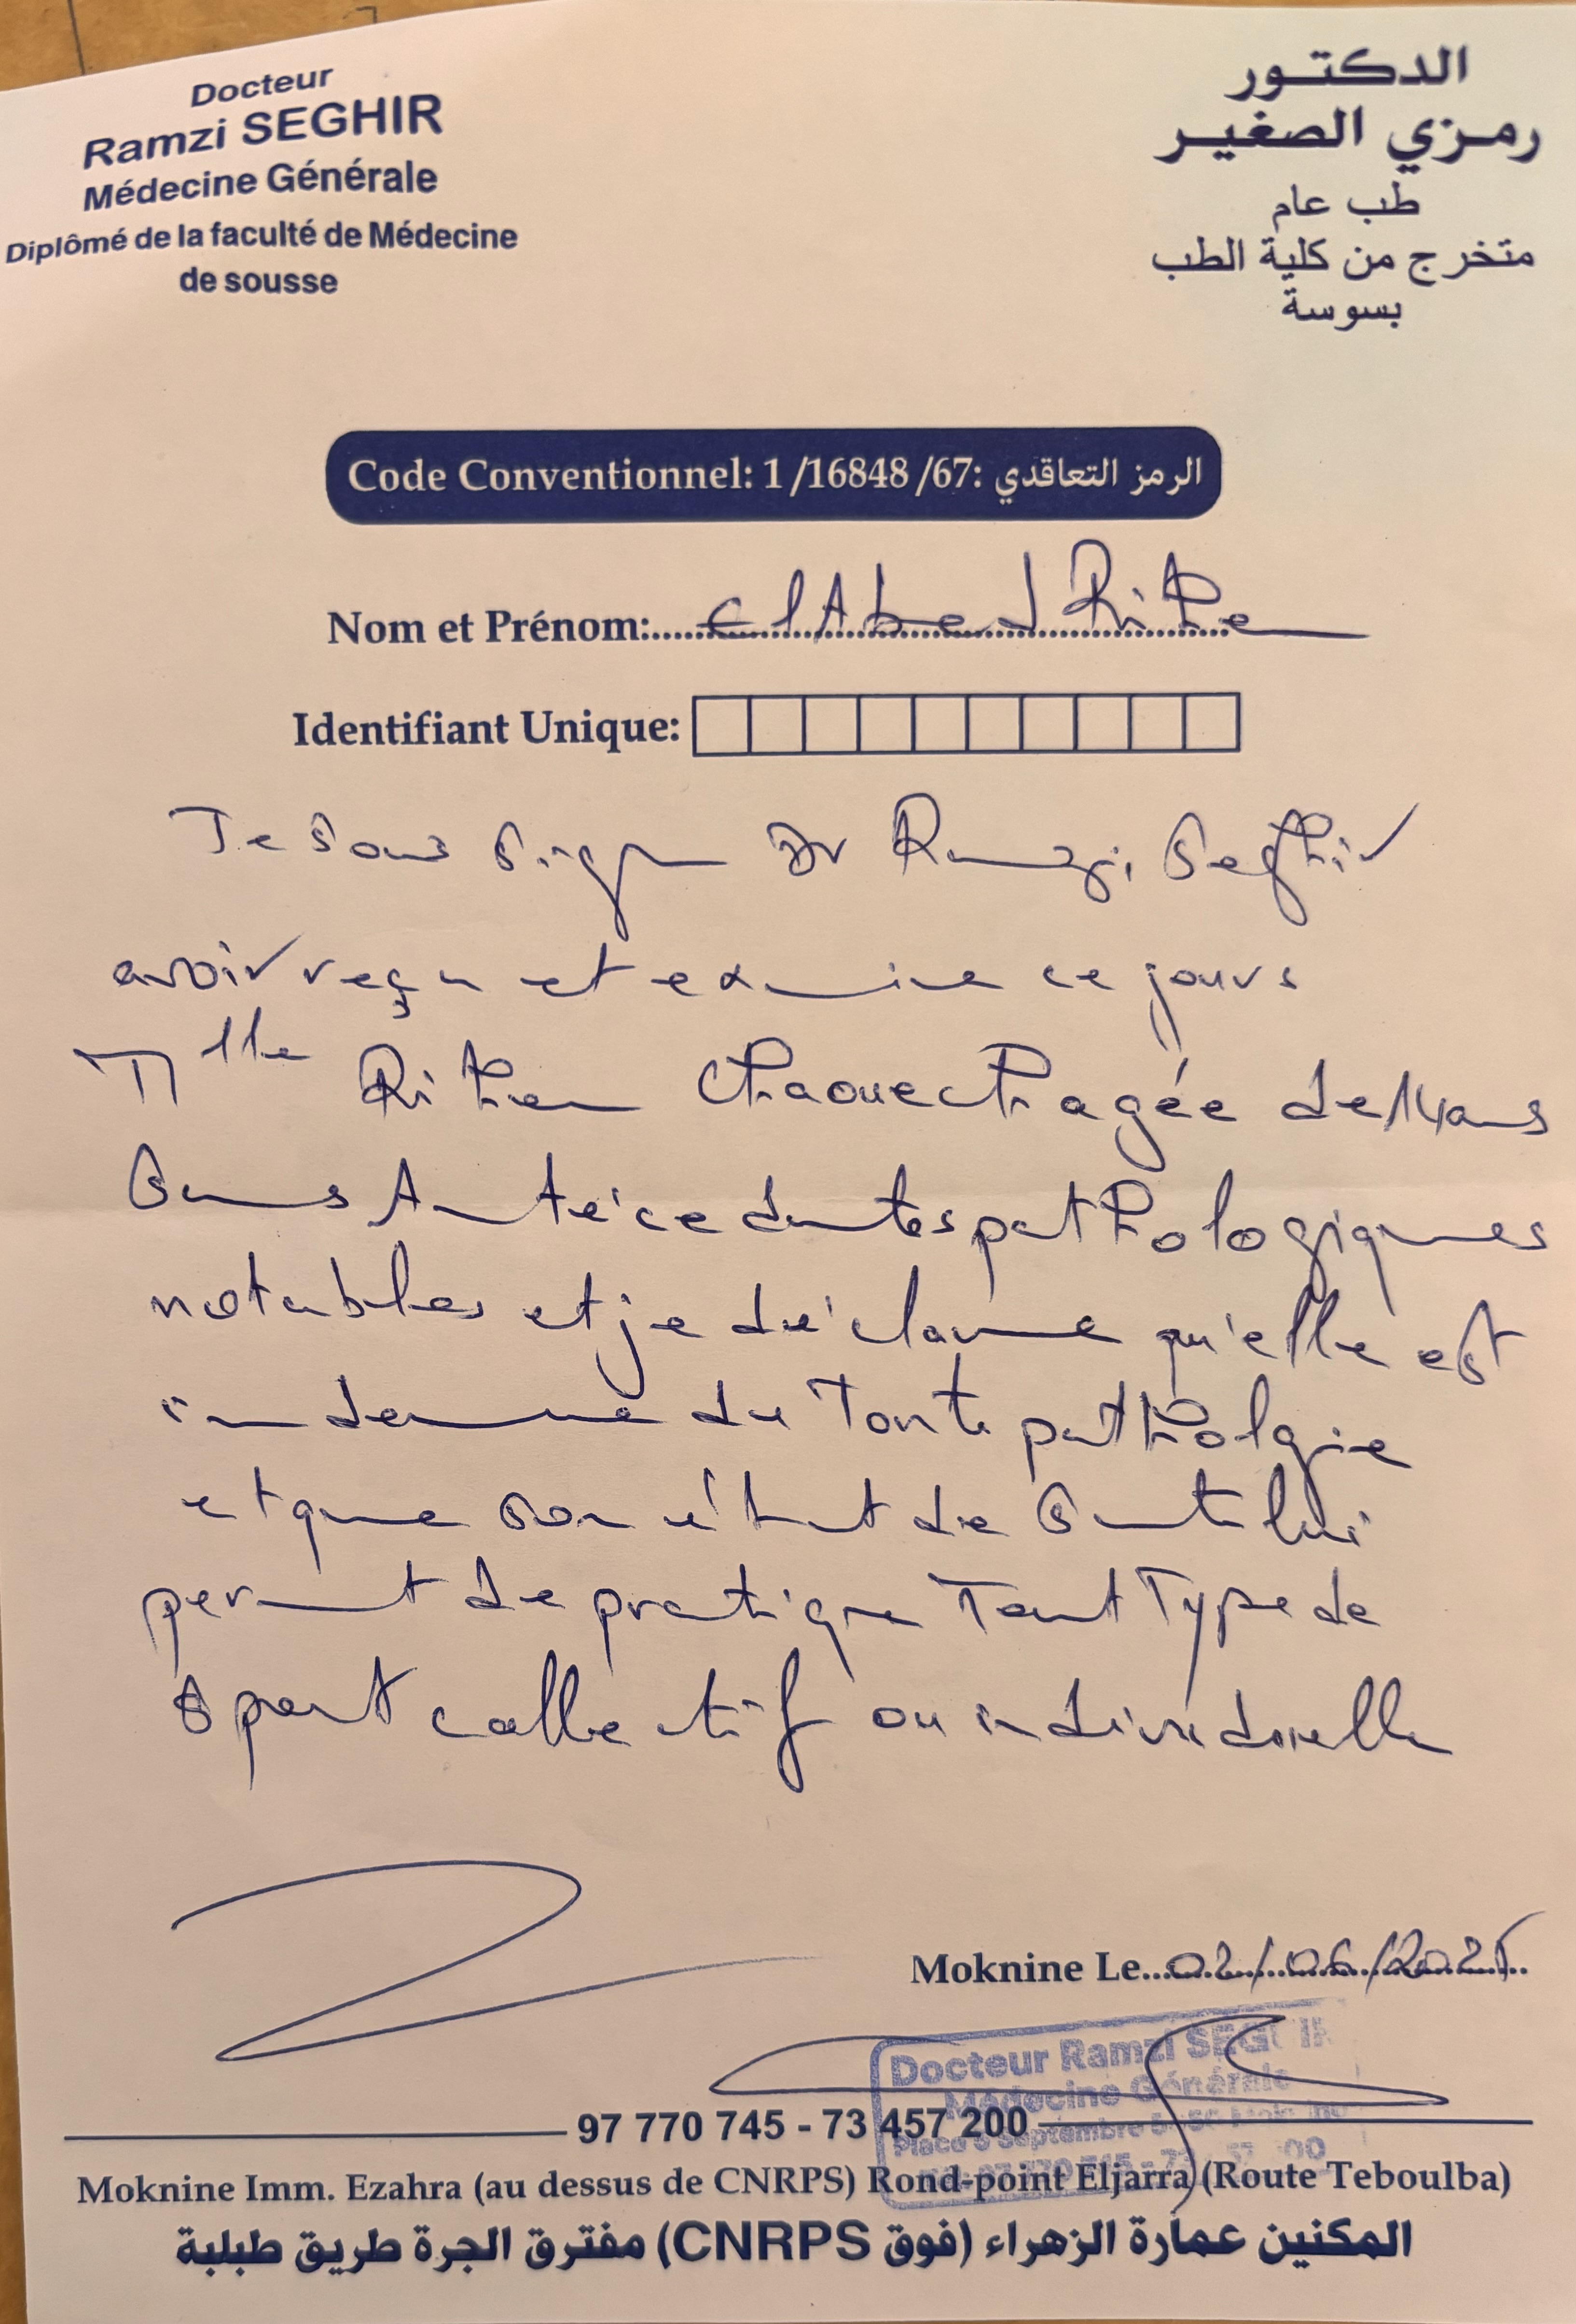 Docteur
Ramzi SEGHIR
Médecine Générale
Diplômé de la faculté de Médecine
de sousse
الدكتور
رمزي الصغير
طب عام
متخرج من كلية الطب
بسوسة
Code Conventionnel: 1/16848/67: الرمز التعاقدي
Nom et Prénom: El Abed
Identifiant Unique:
Je sous signe Dr Ramzi Seghir
avoir reçu et examine ce jours
Mlle Rihem Chaouech agée de 14 ans
Sans Antécedentes pathologiques
notables et je déclare qu'elle est
indemne de toute patholgie
et que son état de sante lui
permet de pratique Tout Type de
sport collectif ou individuelle
Moknine Le 02/06/2025
Docteur Ramzi SEGHIR
Médecine Générale
97 770 745 - 73 457 200
Moknine Imm. Ezahra (au dessus de CNRPS) Rond-point Eljarra (Route Teboulba)
المكنين عمارة الزهراء (فوق CNRPS) مفترق الجرة طريق طبلبة